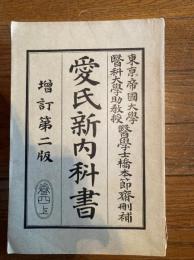 東京帝國大學
醫科大學助教授 醫學士橋本節齋刪補
愛氏新内科書
增訂第二版
卷四上